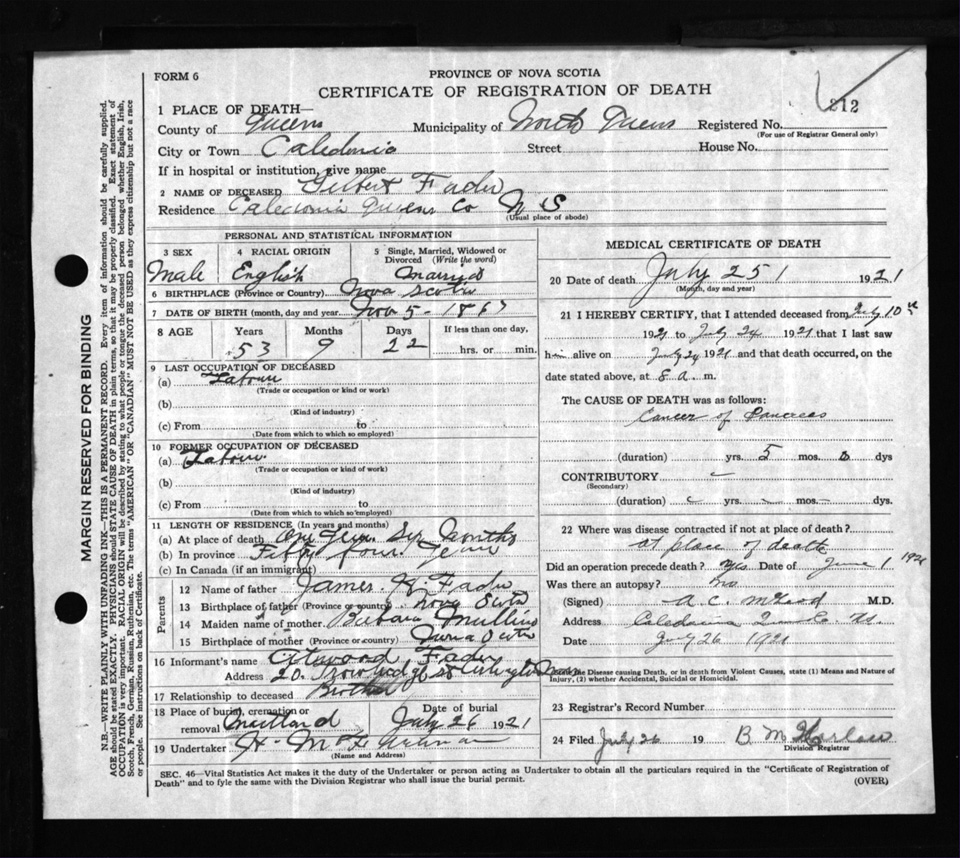 FORM 6
PROVINCE OF NOVA SCOTIA
CERTIFICATE OF REGISTRATION OF DEATH
212
1 PLACE OF DEATH—
County of Queens Municipality of North Queens Registered No.
(For use of Registrar General only)
City or Town Caledonia Street House No.
If in hospital or institution, give name
2 NAME OF DECEASED Gilbert Fader
Residence Caledonia Queens Co N S
(Usual place of abode)
PERSONAL AND STATISTICAL INFORMATION
3 SEX 4 RACIAL ORIGIN 5 Single, Married, Widowed or Divorced (Write the word)
Male English Married
6 BIRTHPLACE (Province or Country) Nova Scotia
7 DATE OF BIRTH (month, day and year) Nov 5 - 1867
8 AGE Years Months Days If less than one day,
53 9 22 hrs. or min.
9 LAST OCCUPATION OF DECEASED
(a) Labour
(Trade or occupation or kind or work)
(b)
(Kind of industry)
(c) From to
(Date from which to which so employed)
10 FORMER OCCUPATION OF DECEASED
(a) Labour
(Trade or occupation or kind of work)
(b)
(Kind of industry)
(c) From to
(Date from which to which so employed)
11 LENGTH OF RESIDENCE (In years and months)
(a) At place of death One Year Six Months
(b) In province Fifty four Years
(c) In Canada (if an immigrant)
Parents
12 Name of father James H Fader
13 Birthplace of father (Province or country) Nova Scotia
14 Maiden name of mother Barbara Mullins
15 Birthplace of mother (Province or country) Nova Scotia
16 Informant's name Atwood Fader
Address 20 St Arlington Mass
17 Relationship to deceased Brother
18 Place of burial, cremation or removal Maitland Date of burial July 26 1921
19 Undertaker H
(Name and Address)
MEDICAL CERTIFICATE OF DEATH
20 Date of death July 25 1921
(Month, day and year)
21 I HEREBY CERTIFY, that I attended deceased from July 10th
1921 to July 24 1921 that I last saw
him alive on July 24 1921 and that death occurred, on the
date stated above, at 8 a. m.
The CAUSE OF DEATH was as follows:
Cancer of Pancreas
(duration) yrs. 5 mos. dys
CONTRIBUTORY
(Secondary)
(duration) yrs. mos. dys.
22 Where was disease contracted if not at place of death?
at place of death
Did an operation precede death? Yes Date of June 1 1921
Was there an autopsy? No
(Signed) A. C. McLeod M.D.
Address Caledonia Queens Co. N.S.
Date July 26 1921
the Disease causing Death, or in death from Violent Causes, state (1) Means and Nature of
Injury, (2) whether Accidental, Suicidal or Homicidal.
23 Registrar's Record Number
24 Filed July 26 19 B M Harlow
Division Registrar
SEC. 46—Vital Statistics Act makes it the duty of the Undertaker or person acting as Undertaker to obtain all the particulars required in the "Certificate of Registration of
Death" and to fyle the same with the Division Registrar who shall issue the burial permit.
(OVER)
MARGIN RESERVED FOR BINDING
N.B.—WRITE PLAINLY WITH UNFADING INK—THIS IS A PERMANENT RECORD. Every item of information should be carefully supplied.
AGE should be stated EXACTLY. PHYSICIANS should STATE CAUSE OF DEATH in plain terms, so that it may be properly classified. Exact statement of
OCCUPATION is very important. RACIAL ORIGIN will be described by stating to what people or tongue the deceased person belonged whether English, Irish,
Scotch, French, German, Russian, Ruthenian, etc. The terms "AMERICAN" OR "CANADIAN" MUST NOT BE USED as they express citizenship but not a race
or people. See instructions on back of Certificate.